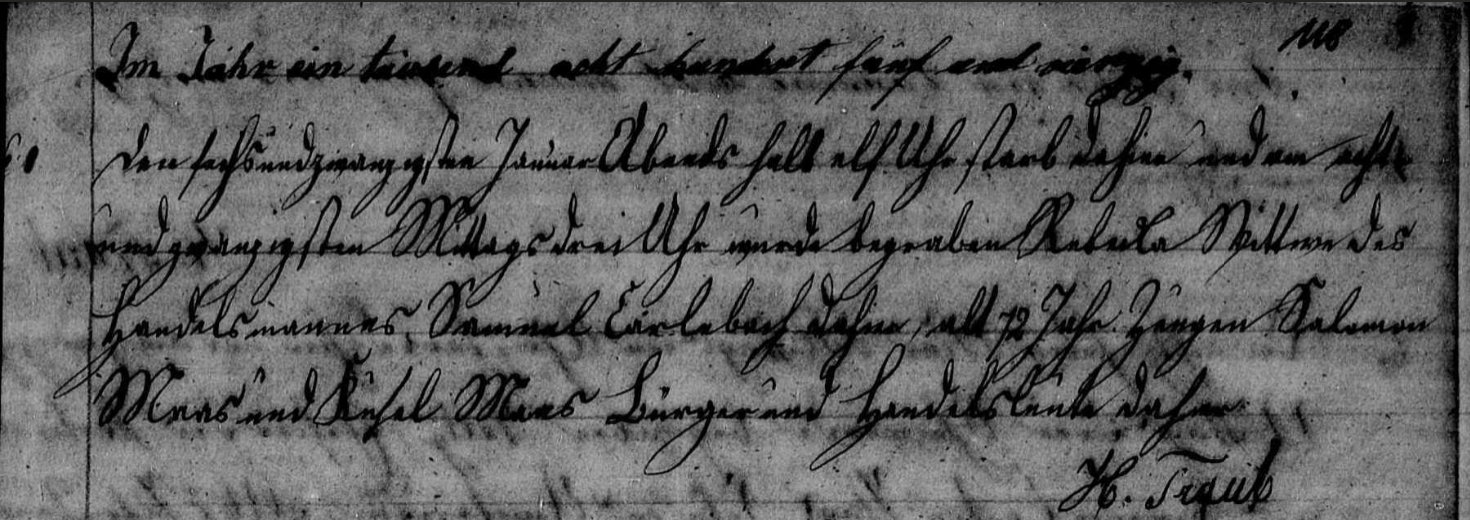 118
Im Jahr ein tausend acht hundert fünf und vierzig.
den sechsundzwanzigsten Januar Abends halb elf Uhr starb dahier und am acht-
undzwanzigsten Mittags drei Uhr wurde begraben Rebecka Wittwe des
Handelsmannes Samuel Carlebach dahier, alt 72 Jahr. Zeugen Salomon
Maas und Maas Bürger und Handelsleute dahier
H. Traub